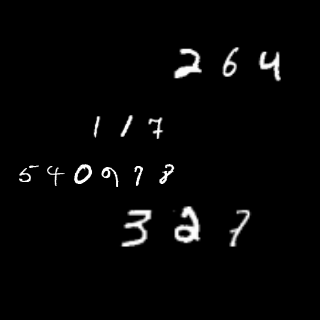 264
117
540978
327